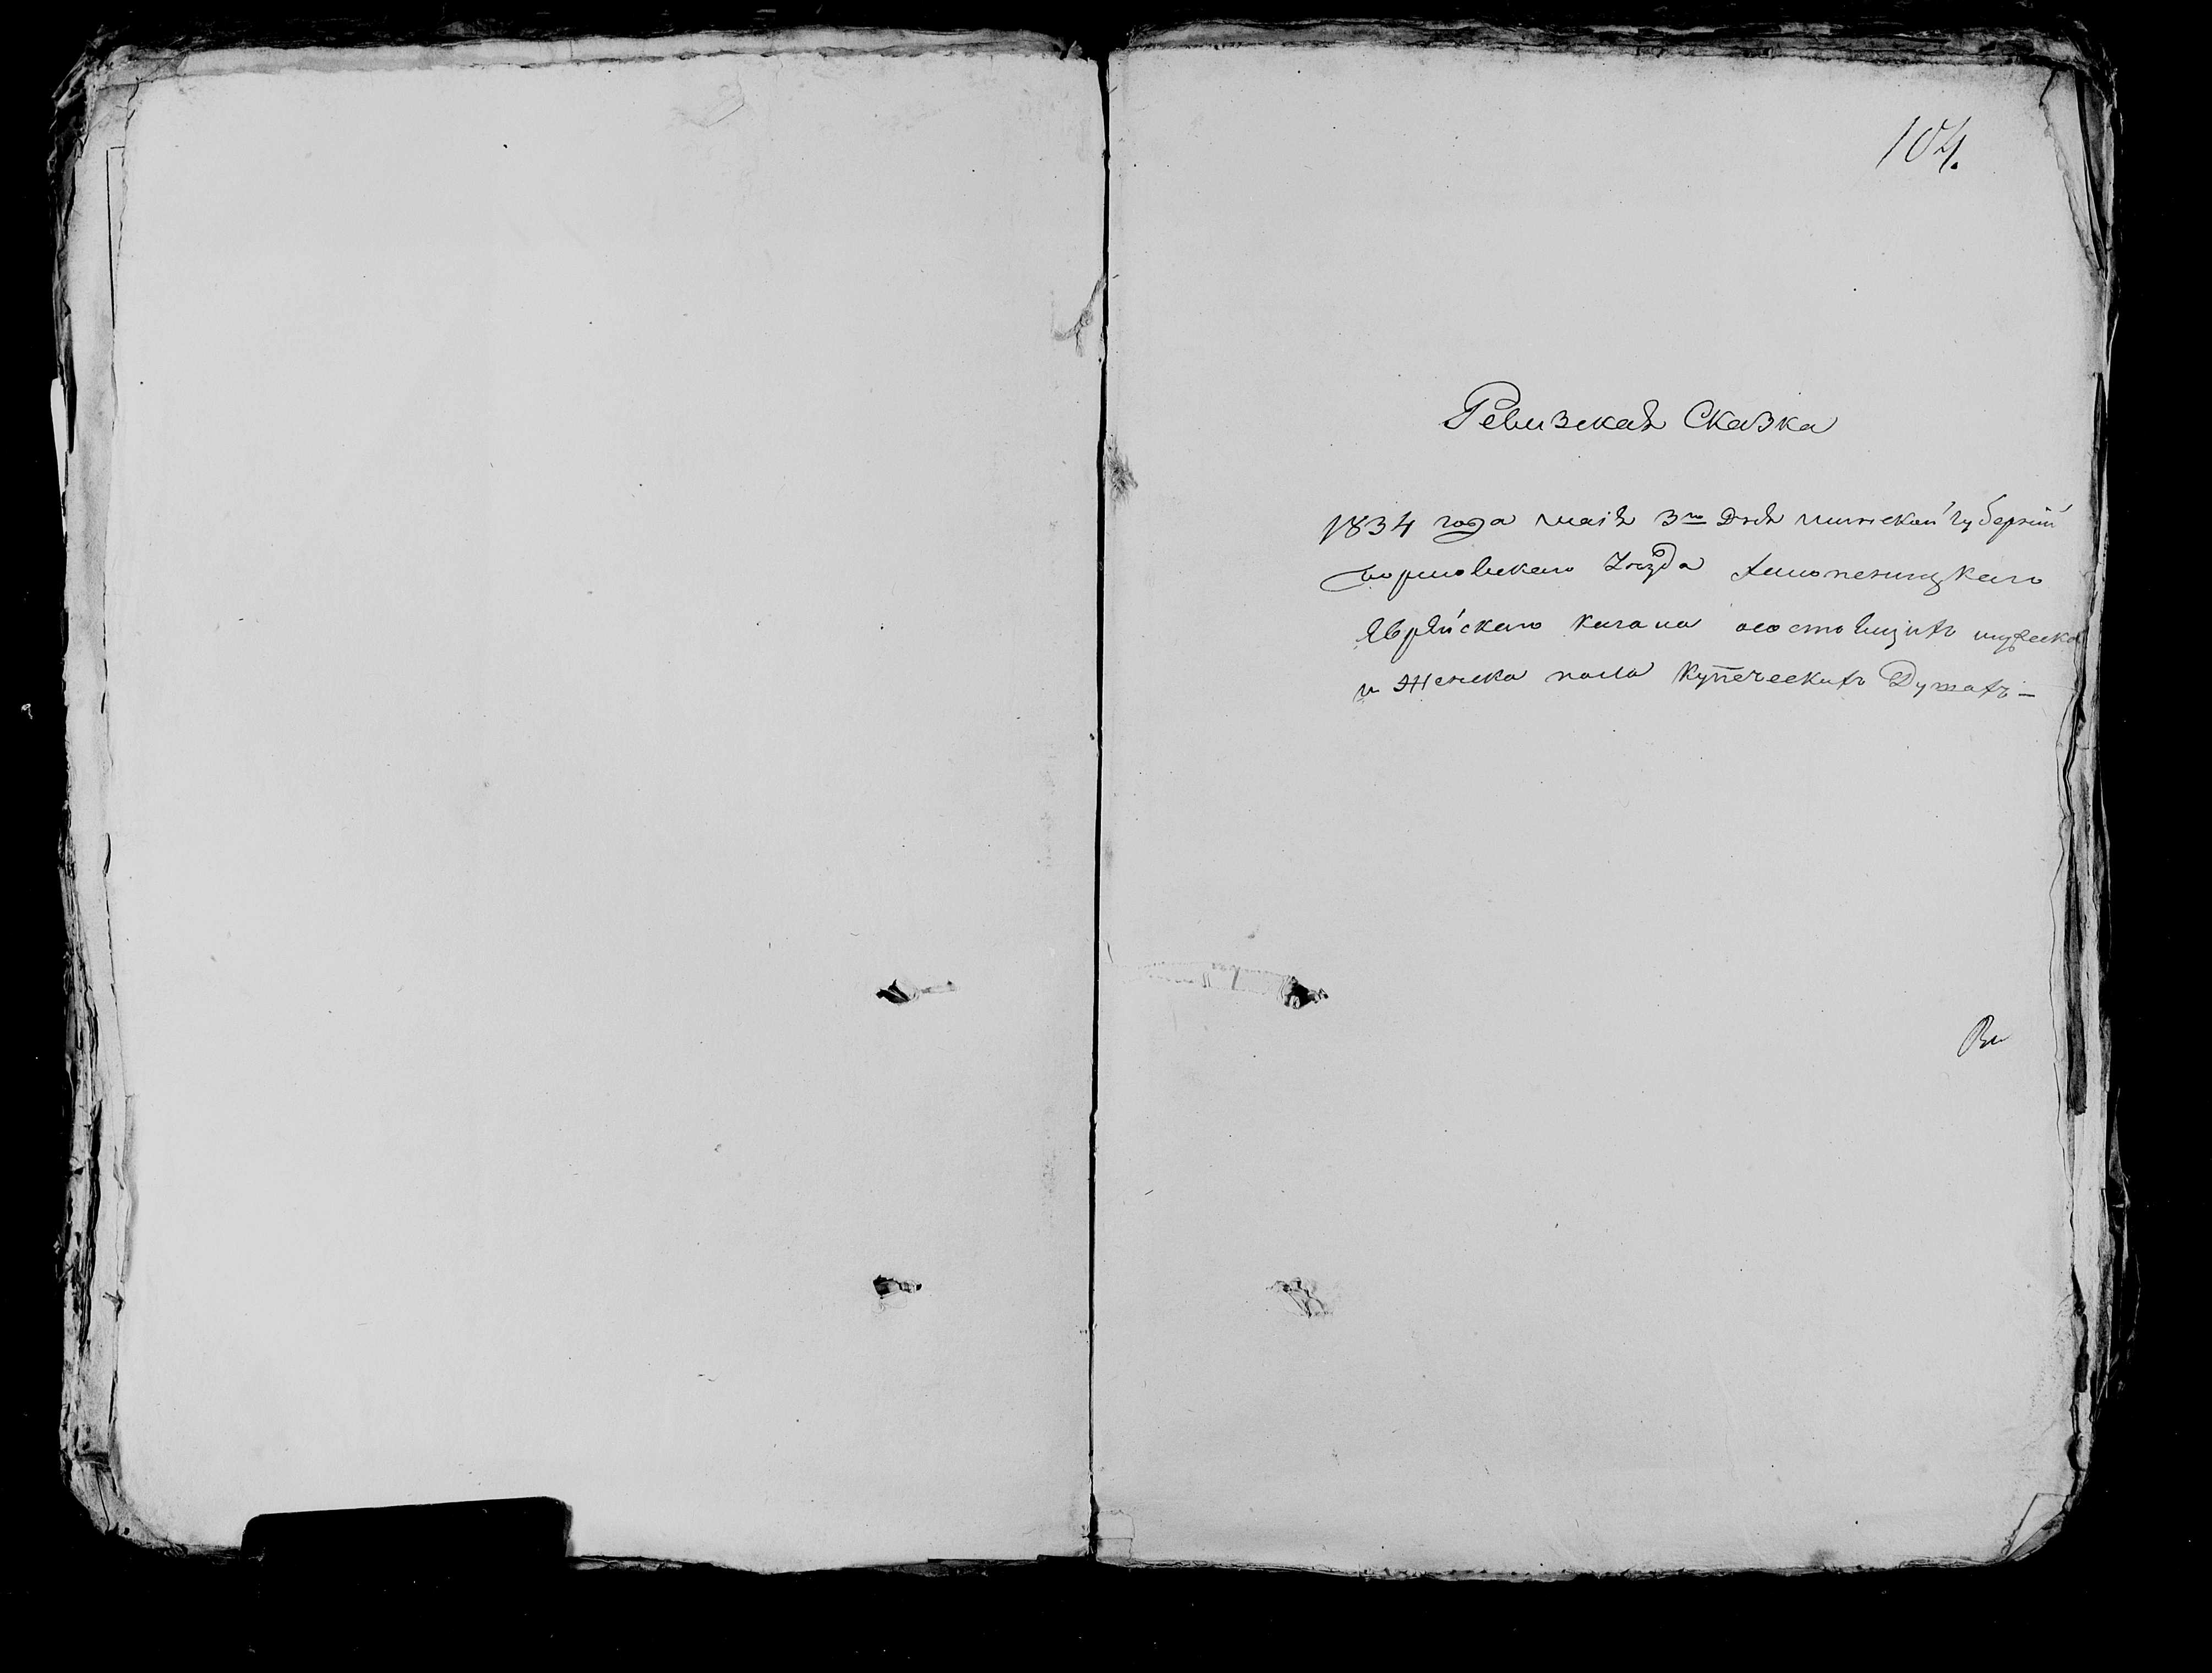 104.
Ревизская Сказка
1834 года маія 3го Дня минской губерніи
борисовскаго уѣзда Холопеницкаго
Еврейскаго кагала осостоящихъ мужеска
и Женска пола купеческихъ Душахъ —